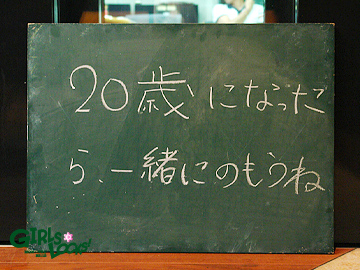 20歳になった
ら、一緒にのもうね
GIRLS
LOOP!